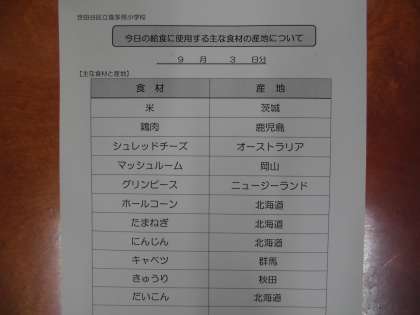 世田谷区立喜多見小学校
今日の給食に使用する主な食材の産地について
９　月　３　日分
【主な食材と産地】
食材　産地
米　茨城
鶏肉　鹿児島
シュレッドチーズ　オーストラリア
マッシュルーム　岡山
グリンピース　ニュージーランド
ホールコーン　北海道
たまねぎ　北海道
にんじん　北海道
キャベツ　群馬
きゅうり　秋田
だいこん　北海道